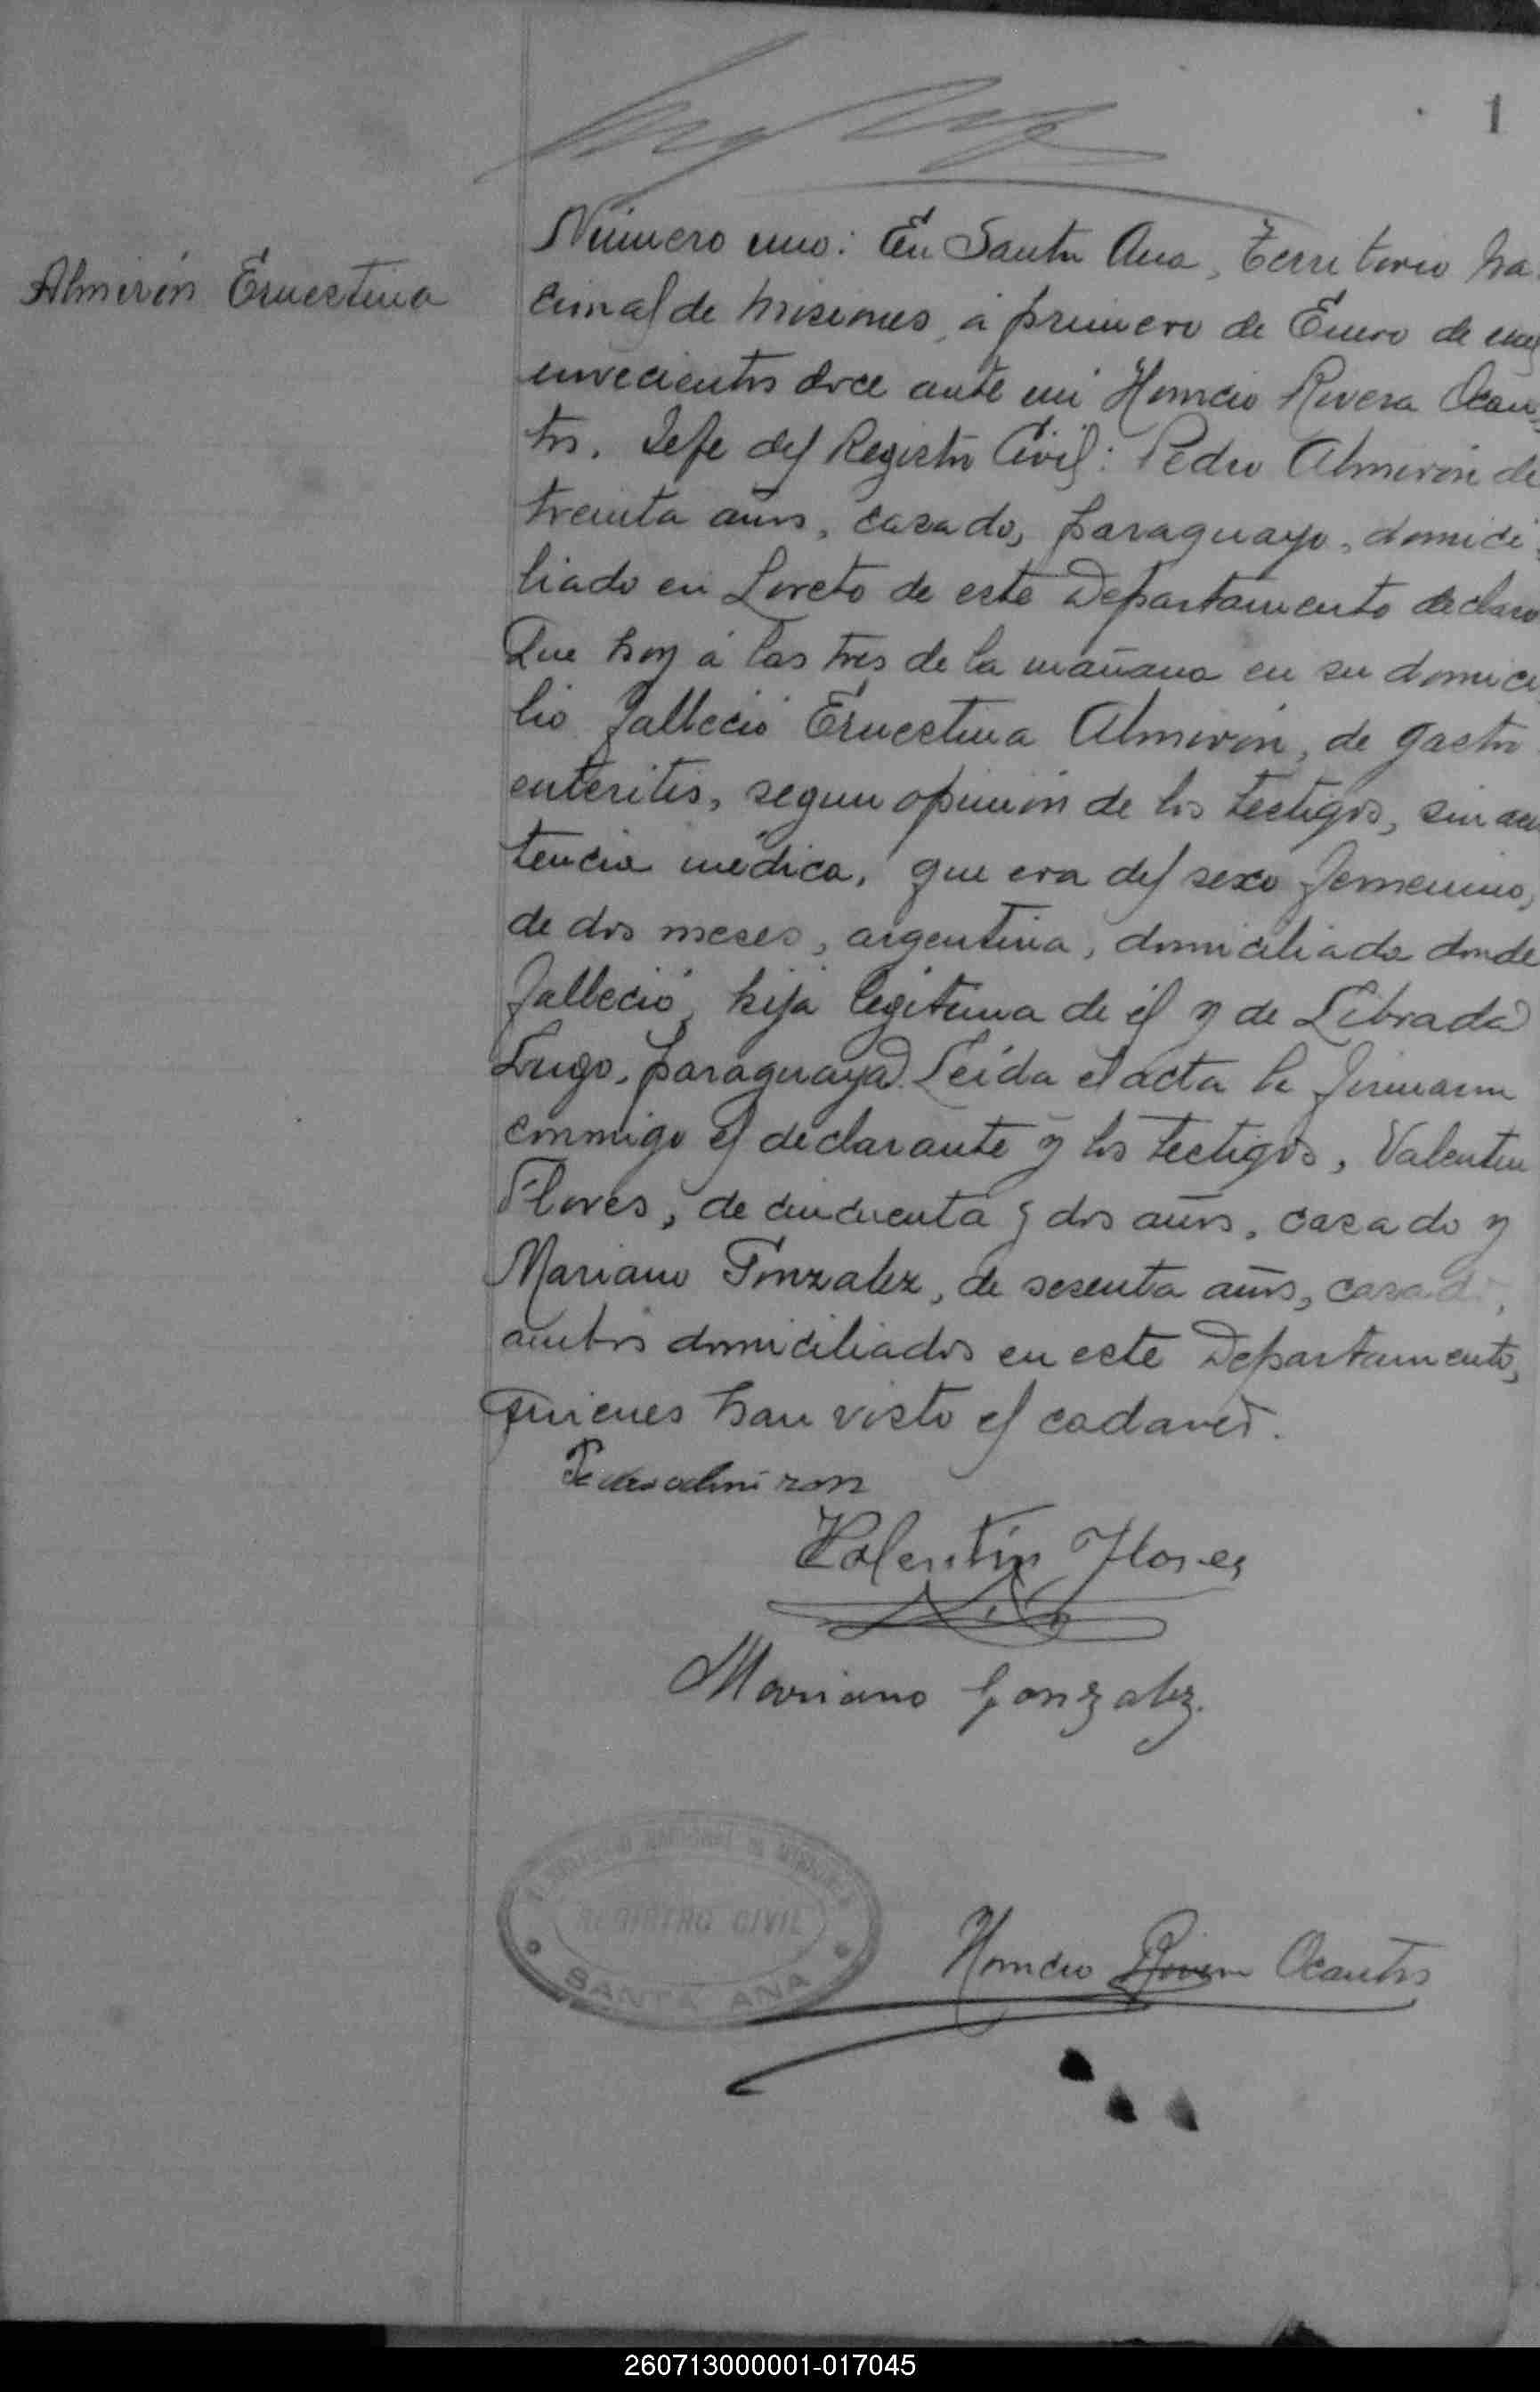 1
Almirón Ernestina
Número uno: En Santa Ana, Territorio Na
cional de Misiones, á primero de Enero de mil
novecientos doce ante mi Horacio Rivera Ocan
tos, Jefe del Registro Civil: Pedro Almirón de
treinta años, casado, paraguayo, domici
liado en Loreto de este Departamento declaro
Que hoy á las tres de la mañana en su domici
lio falleció Ernestina Almirón, de gastro
enteritis, segun opinión de los testigos, sin asis
tencia médica, que era del sexo femenino,
de dos meses, argentina, domiciliada donde
falleció, hija legitima de él y de Librada
Lugo, paraguaya. Leida el acta la firmaron
conmigo el declarante y los testigos, Valentin
Flores, de cincuenta y dos años, casado y
Mariano Gonzalez, de sesenta años, casado,
ambos domiciliados en este Departamento,
quienes han visto el cadaver.
Pedro almiron
Valentín Flores
Mariano Gonzalez.
REGISTRO CIVIL
SANTA ANA
Horacio Rivera Ocantos
260713000001-017045